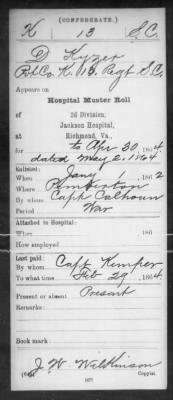 (CONFEDERATE.)
K 13 S.C.
D Kyzer
Pvt Co. K. 13. Regt S.C.
Appears on
Hospital Muster Roll
of
2d Division,
Jackson Hospital,
at
Richmond, Va.,
to Apr 30 1864
dated May 2. 1864
Enlisted:
When Jany 1862
Where Pemberton
By whom Capt Calhoun
Period War
Attached to Hospital:
When 186
How employed
Last paid:
By whom Capt Kemper
To what time Feb 29, 1864
Present or absent Present
Remarks:
Book mark:
J. W. Wilkinson
Copyist.